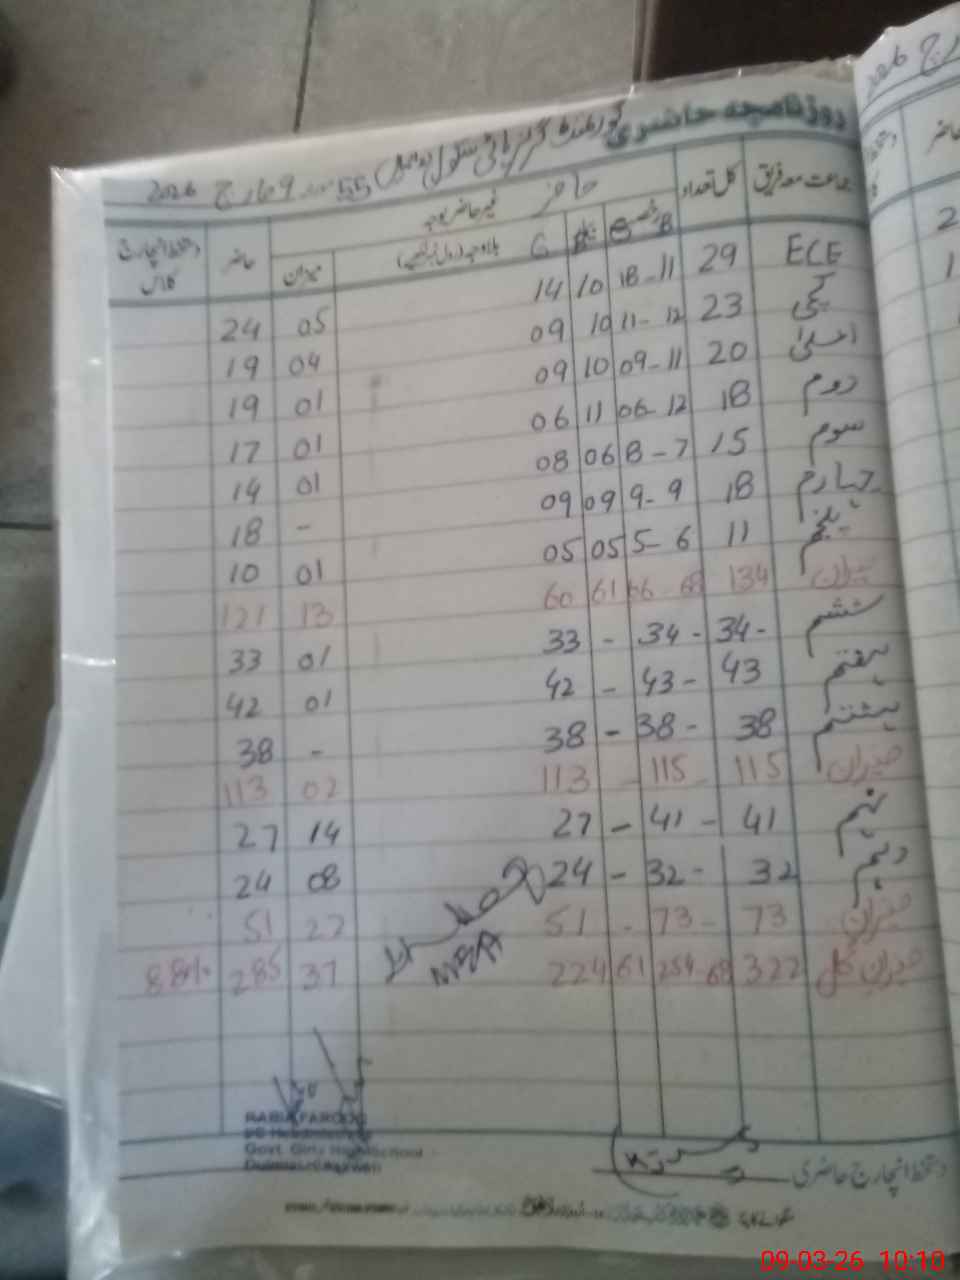 روزنامچہ حاضری گورنمنٹ گرلز ہائی سکول 55 9 مارچ 2026
جماعت معہ فریق کل تعداد حاضر غیر حاضر بوجہ حاضر دستخط انچارج کلاس
B G B G میزان
ECE 29 11 - 18 10 14 05 24
کچی 23 12 - 11 10 09 04 19
اعلیٰ 20 11 - 09 10 09 01 19
دوم 18 12 - 06 11 06 01 17
سوم 15 7 - 8 06 08 01 14
چہارم 18 9 - 9 09 09 - 18
پنجم 11 6 - 5 05 05 01 10
میزان 134 68 66 61 60 13 121
ششم 34 - 34 - 33 01 33
ہفتم 43 - 43 - 42 01 42
ہشتم 38 - 38 - 38 - 38
میزان 115 - 115 - 113 02 113
نہم 41 - 41 - 27 14 27
دہم 32 - 32 - 24 08 24
میزان 73 - 73 - 51 22 51
میزان کل 322 68 254 61 224 37 285 88%
RABIA FAROOQ
Govt. Girls High School
دستخط انچارج حاضری
09-03-26 10:10